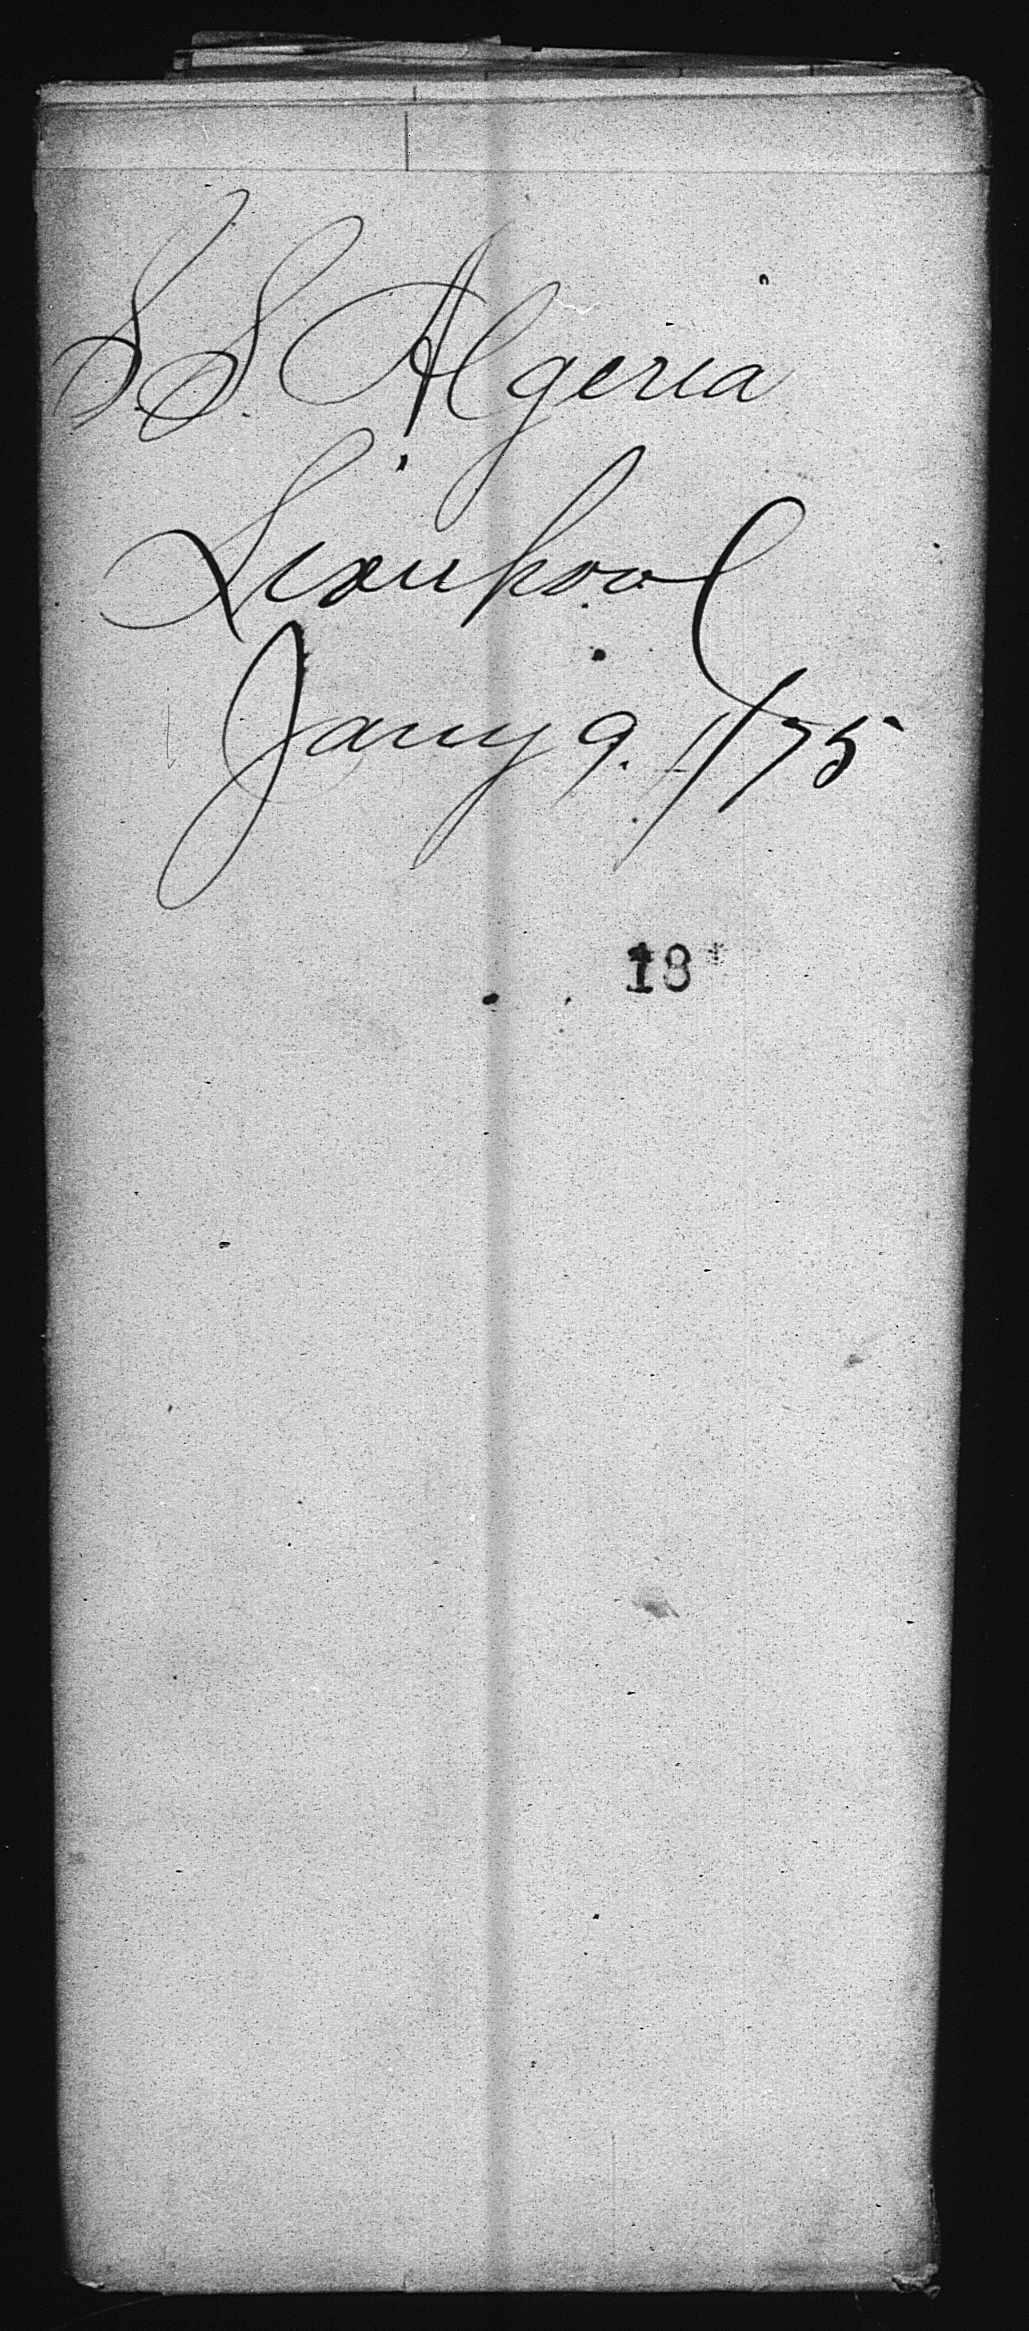 S.S. Algeria
Liverpool
Jany 9. 1/75
18